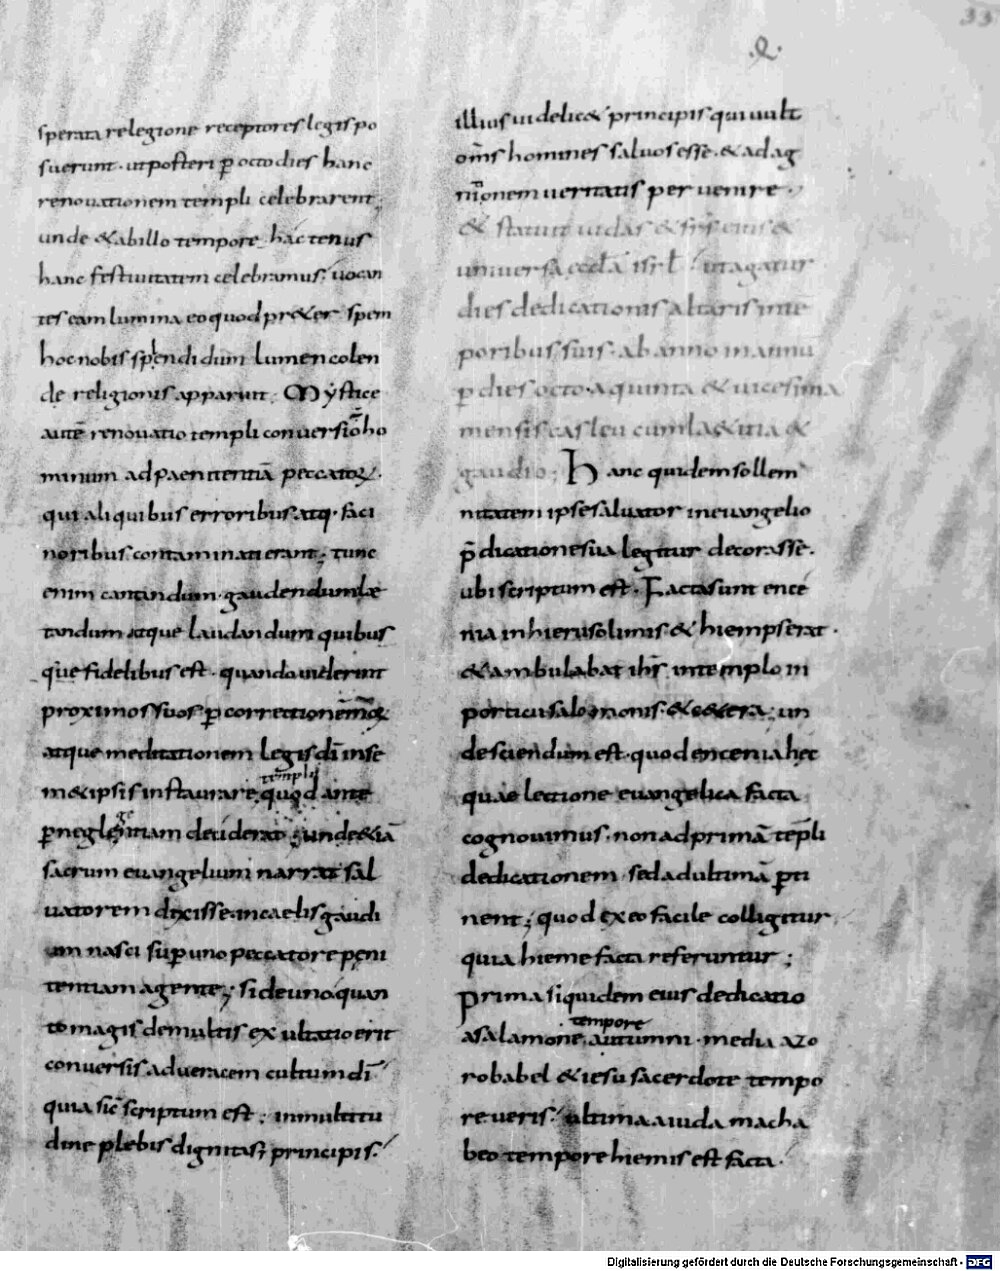 33
.Q.
sperata relegione receptores legis po
suerunt · ut posteri p̄ octo dies hanc
renouationem templi celebrarent;
unde & ab illo tempore hactenus
hanc festiuitatem celebramus; uocan
tes eam lumina eo quod pr&er spem
hoc nobis splendidum lumen colen
dę religionis apparuit; Mystice
autē renouatio templi conuersio ho
minum ad paenitentiā peccatoꝝ.
qui aliquibus erroribus atq· faci
noribus contaminati erant; tunc
enim cantandum · gaudendum læ
tandum atque laudandum quibus
que fidelibus est · quando uiderint
proximos suos p̄ correctionē moꝝ
atque meditationem legis dī in se
m&ipsis instaurare templū quod ante
p̄ neglegentiam deciderat; unde &iā
sacrum euangelium narrat sal
uatorem dixisse in caelis gaudi
um nasci sup̄ uno peccatore peni
tentiam agente; si de uno quan
to magis de multis exultatio erit
conuersis ad ueracem cultum dī
quia sic scriptum est; in multitu
dine plebis dignitas; principis.
illius uidelic& principis qui uult
om̄s homines saluos esse · & ad ag
nitionem ueritatis peruenire.
& statuit iudas & fr̄s eius &
uniuersa eccl̄a isrl̄ · ut agatur
dies dedicationis altaris in tē
poribus suis · ab anno in annū
p̄ dies octo · a quinta & uicesima
mensis casleu cum læ&itia &
gaudio; Hanc quidem sollem
nitatem ipse saluator in euangelio
p̄dicatione sua legitur decorasse.
ubi scriptum est · Facta sunt ence
nia in hierusolimis & hiemps erat.
& ambulabat ihs̄ in templo in
porticu salomonis · & c&era; un
de sciendum est · quod encenia hec
quae lectione euangelica facta
cognouimus · non ad primā tēpli
dedicationem sed ad ultimā p̄ti
nent; quod ex eo facile colligitur
quia hieme facta referuntur;
Prima siquidem eius dedicatio
a salamone tempore autumni · media a zo
robabel & iesu sacerdote tempo
re ueris · ultima a iuda macha
beo tempore hiemis est facta.
Digitalisierung gefördert durch die Deutsche Forschungsgemeinschaft - DFG